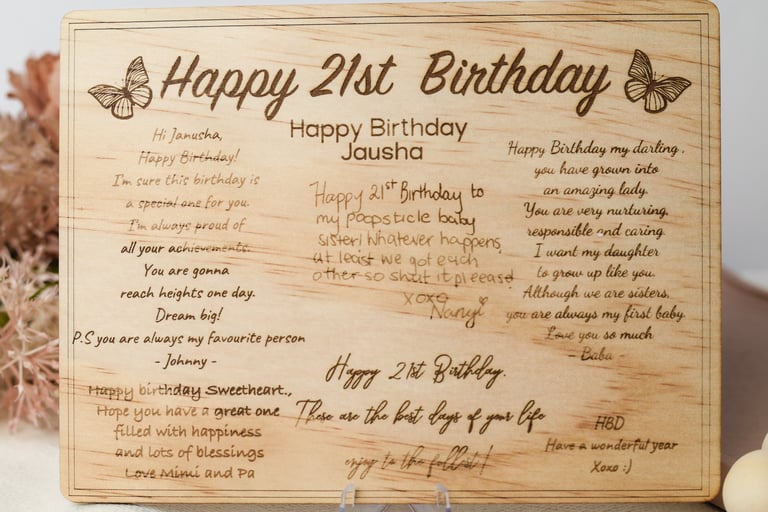 Happy 21st Birthday
Hi Janusha,
Happy Birthday!
I'm sure this birthday is
a special one for you.
I'm always proud of
all your achievements.
You are gonna
reach heights one day.
Dream big!
P.S you are always my favourite person
- Johnny -
Happy birthday Sweetheart.,
Hope you have a great one
filled with happiness
and lots of blessings
Love Mimi and Pa
Happy Birthday
Jausha
Happy 21st Birthday to
my poopsticle baby
sister! Whatever happens,
at least we got each
other so shut it pleease!
xoxo
Nangi
Happy 21st Birthday.
These are the best days of your life
enjoy to the fullest!
Happy Birthday my darling,
you have grown into
an amazing lady.
You are very nurturing,
responsible and caring.
I want my daughter
to grow up like you.
Although we are sisters,
you are always my first baby.
Love you so much
- Baba -
HBD
Have a wonderful year
Xoxo :)